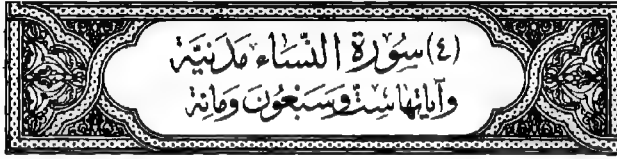 (٤) سُورَةُ النِّسَاء مَدَنِيَّة
وَآيَاتُهَا سِتٌّ وَسَبْعُونَ وَمِائَة